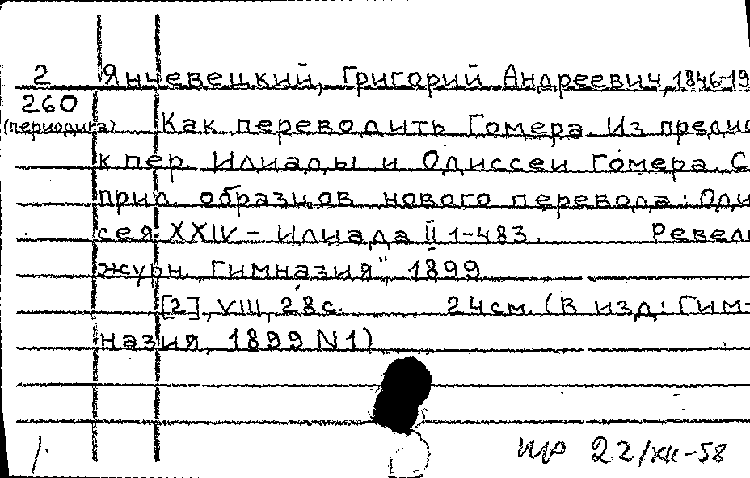 2 Янчевецкий, Григорий Андреевич, 1846-19
260
(периодика) Как переводить Гомера. Из предис
к пер. Илиады и Одиссеи Гомера. С
прил. образцов нового перевода: Оди
сея XXIV - Илиада II 1-483. Ревел
журн. Гимназия" 1899
[2], VIII, 28с. 24см. (В изд: Гим-
назия, 1899 N1)
22/XII-58